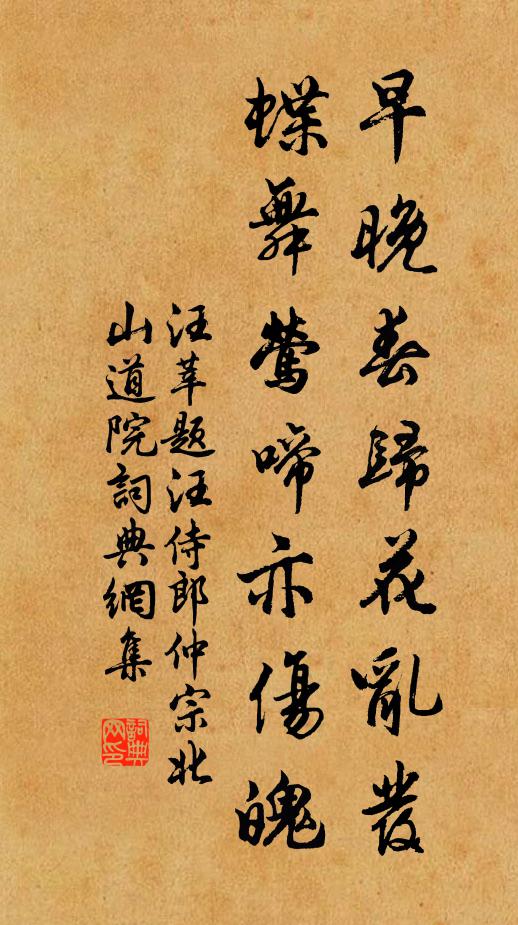 早晚春歸花亂發
蝶舞鶯啼亦傷魄
汪莘題汪侍郎仲宗北
山道院詞典網集
詞典網印